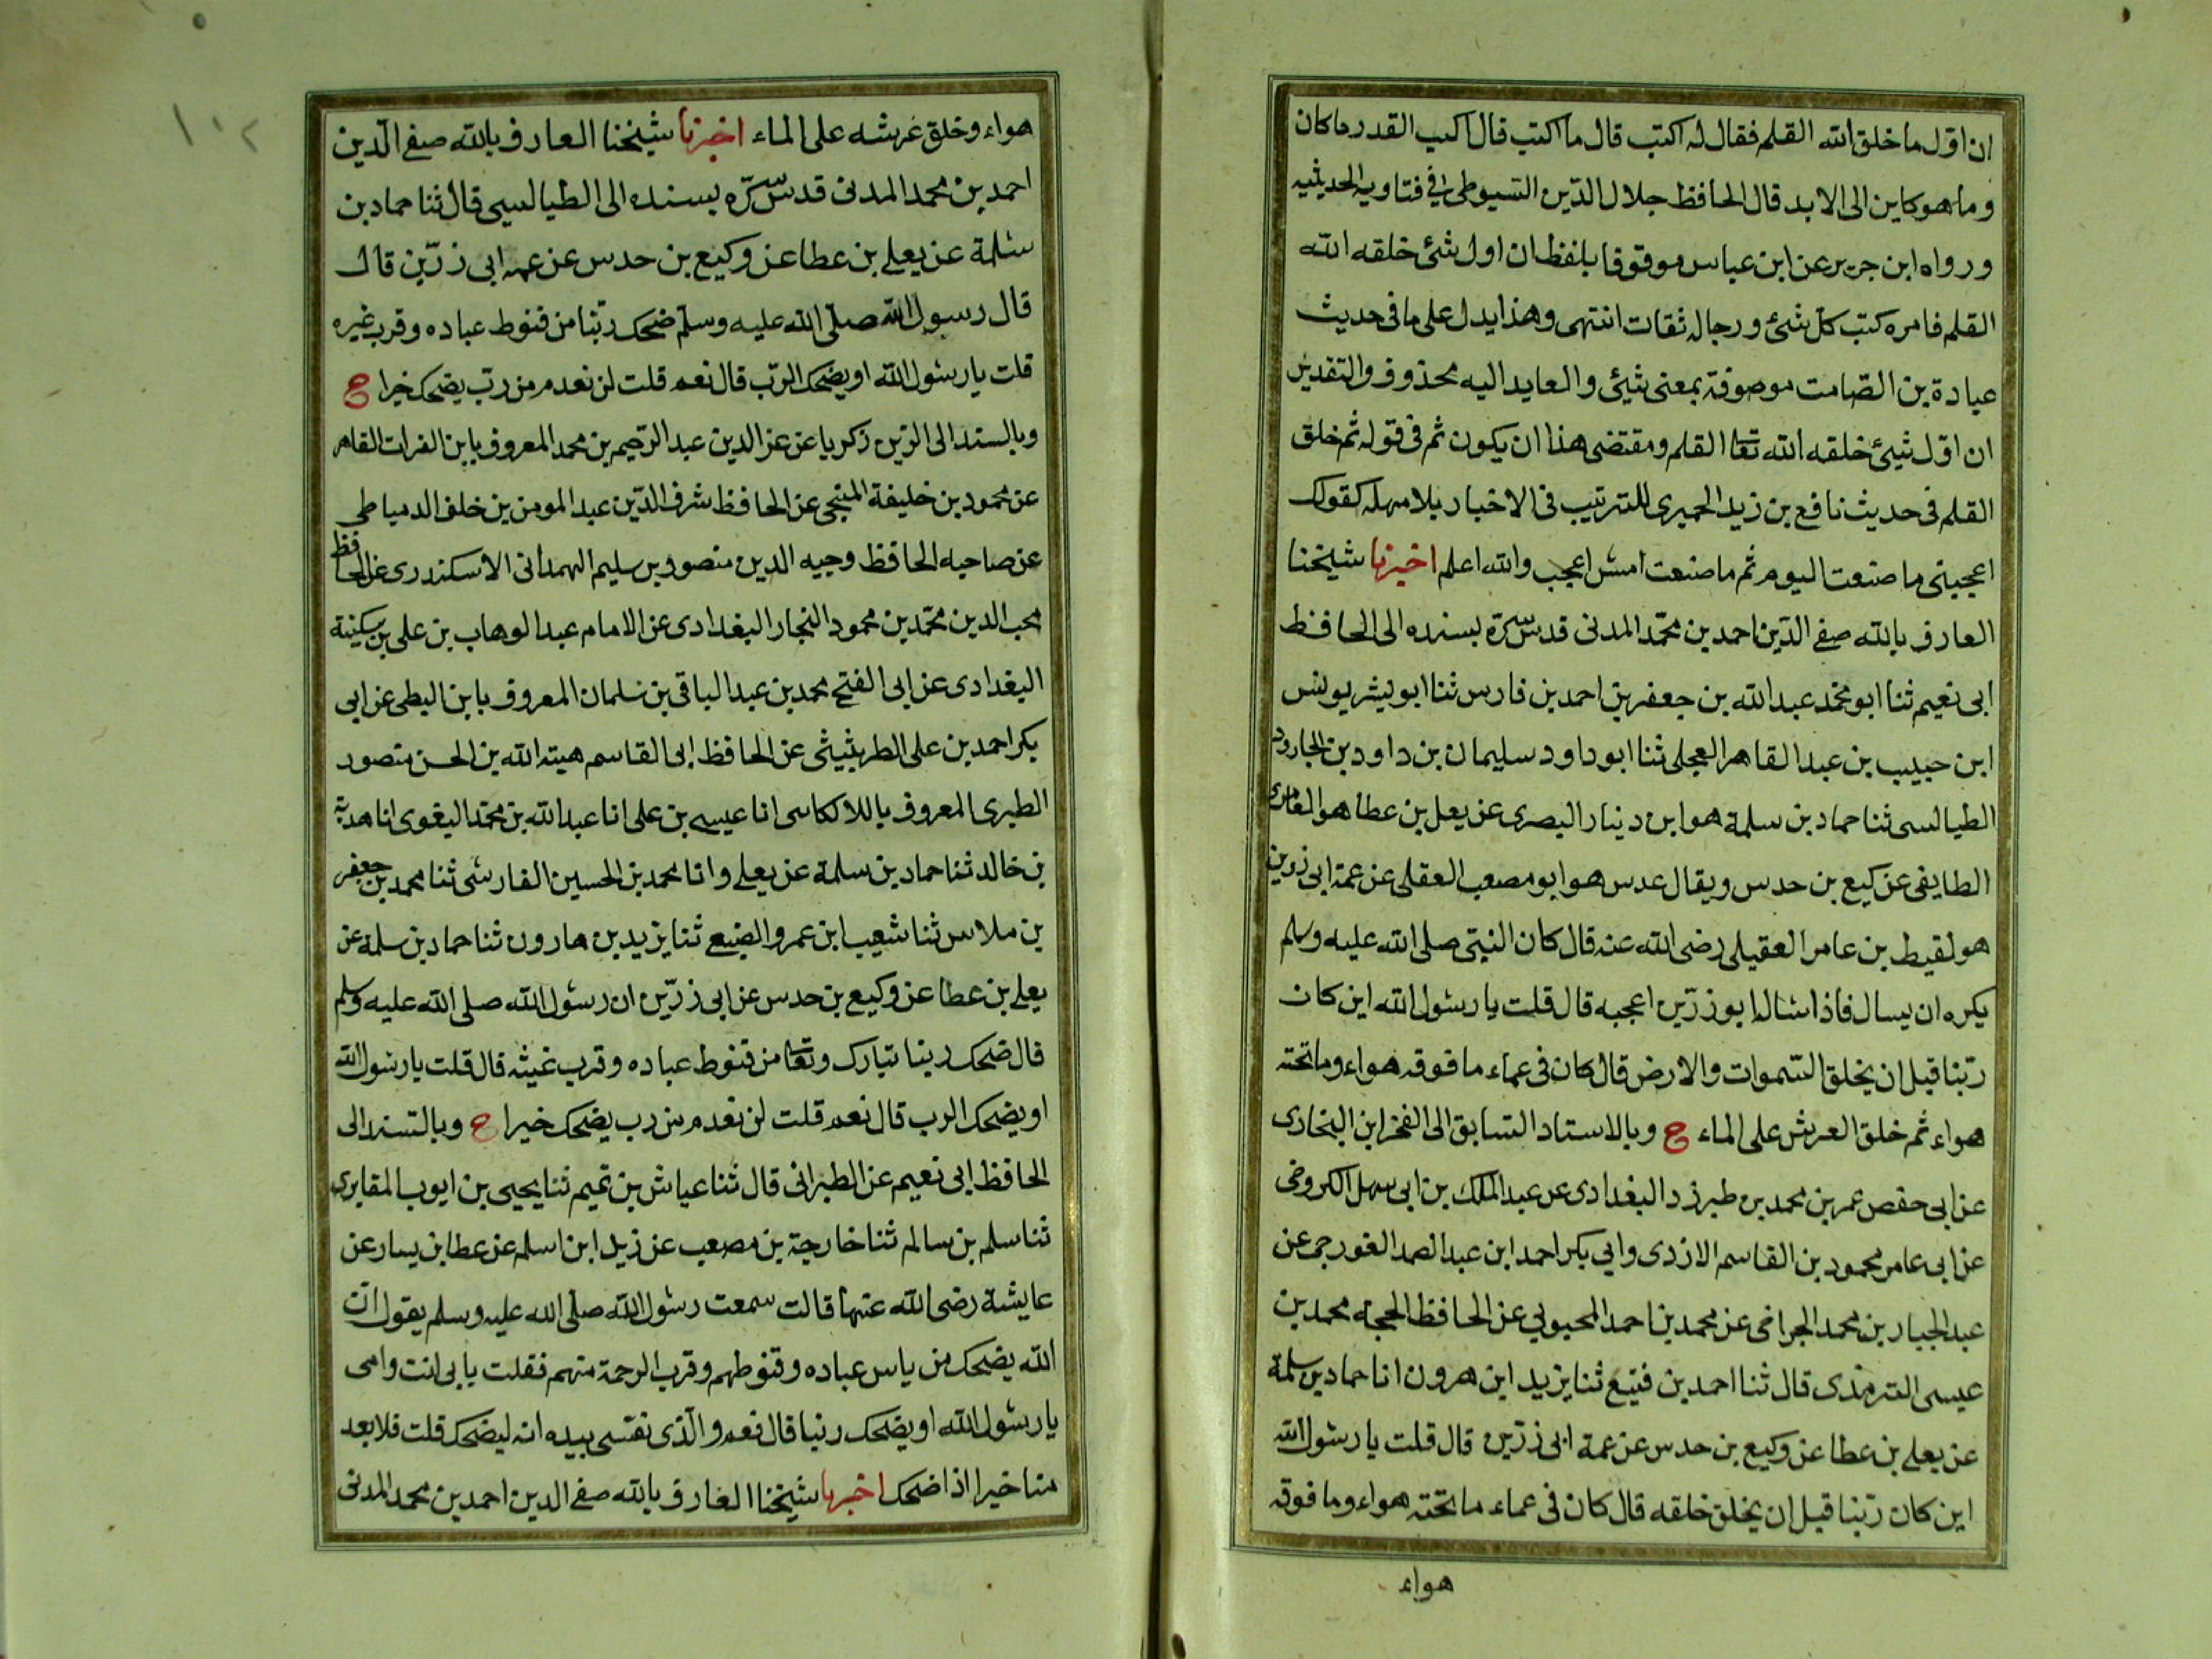 ان اول ما خلق الله القلم فقال له اكتب قال ما اكتب قال اكتب القدر ما كان
وما هو كاين الى الابد قال الحافظ جلال الدين السيوطى فى فتاويه الحديثيه
ورواه ابن جرير عن ابن عباس موقوفا بلفظ ان اول شئ خلقه الله
القلم فامره كتب كل شئ ورجاله ثقات انتهى وهذا يدل على ما فى حديث
عبادة بن الصامت موصوفة بمعنى شيئ والعايد اليه محذوف والتقدير
ان اول شيئ خلقه الله تعا القلم ومقتضى هذا ان يكون ثم فى قوله ثم خلق
القلم فى حديث نافع بن زيد الحميرى للترتيب فى الاخبار بلا مهله كقولك
اعجبنى ما صنعت اليوم ثم ما صنعت امس اعجب والله اعلم اخبرنا شيخنا
العارف بالله صفى الدين احمد بن محمد المدنى قدس سره بسنده الى الحافظ
ابى نعيم ثنا ابو محمد عبد الله بن جعفر بن احمد بن فارس ثنا ابو بشر يونس
ابن حبيب بن عبد القاهر العجلى ثنا ابو داود سليمان بن داود بن الجارود
الطيالسى ثنا حماد بن سلمة هو ابن دينار البصرى عن يعلى بن عطا هو العامرى
الطايفى عن كيع بن حدس ويقال عدس هو ابو مصعب العقلى عن عمه ابى زرين
هو لقيط بن عامر العقيلى رضى الله عنه قال كان النبى صلى الله عليه وسلم
يكره ان يسال فاذا ساله ابو زرين اعجبه قال قلت يا رسول الله اين كان
ربنا قبل ان يخلق السموات والارض قال كان فى عماء ما فوقه هواء وما تحته
هواء ثم خلق العرش على الماء ح وبالاسناد السابق الى الفخر ابن البخارى
عن ابى حفص عمر بن محمد بن طبرزد البغدادى عن عبد الملك بن ابى سهل الكروخى
عن ابى عامر محمود بن القاسم الازدى وابى بكر احمد ابن عبد الصمد الغورجى عن
عبد الجبار بن محمد الجراحى عن محمد بن احمد المحبوبى عن الحافظ الحجة محمد بن
عيسى الترمذى قال ثنا احمد بن منيع ثنا يزيد ابن هرون انا حماد بن سلمة
عن يعلى بن عطا عن وكيع بن حدس عن عمه ابى زرين قال قلت يا رسول الله
اين كان ربنا قبل ان يخلق خلقه قال كان فى عماء ما تحته هواء وما فوقه
هواء
١٠٢
هواء وخلق عرشه على الماء اخبرنا شيخنا العارف بالله صفى الدين
احمد بن محمد المدنى قدس سره بسنده الى الطيالسى قال ثنا حماد بن
سلمة عن يعلى بن عطا عن وكيع بن حدس عن عمه ابى زرين قال
قال رسول الله صلى الله عليه وسلم ضحك ربنا من قنوط عباده وقرب غيره
قلت يا رسول الله او يضحك الرب قال نعم قلت لن نعدم من رب يضحك خيرا ح
وبالسند الى الزين زكريا عن عز الدين عبد الرحيم بن محمد المعروف بابن الفرات القاهر
عن محمود بن خليفة المنبجى عن الحافظ شرف الدين عبد المومن بن خلف الدمياطى
عن صاحبه الحافظ وجيه الدين منصور بن سليم الهمدانى الاسكندرى عن الحافظ
محب الدين محمد بن محمود النجار البغدادى عن الامام عبد الوهاب بن على بن سكينة
البغدادى عن ابى الفتح محمد بن عبد الباقى بن سلمان المعروف بابن البطى عن ابى
بكر احمد بن على الطريثيثى عن الحافظ ابى القاسم هبته الله بن الحسن منصور
الطبرى المعروف باللالكاسى انا عيسى بن على انا عبد الله بن محمد البغوى انا هدبة
بن خالد ثنا حماد بن سلمة عن يعلى وانا محمد بن الحسين الفارسى ثنا محمد بن جعفر
بن ملاس ثنا شعيب ابن عمرو الضبع ثنا يزيد بن هارون ثنا حماد بن سلمة عن
يعلى بن عطا عن وكيع بن حدس عن ابى زرين ان رسول الله صلى الله عليه وسلم
قال ضحك ربنا تبارك وتعا من قنوط عباده وقرب غيثه قال قلت يا رسول الله
او يضحك الرب قال نعم قلت لن نعدم من رب يضحك خيرا ح وبالسند الى
الحافظ ابى نعيم عن الطبرانى قال ثنا عياش بن تميم ثنا يحيى بن ايوب المقابرى
ثنا سلم بن سالم ثنا خارجة بن مصعب عن زيد ابن اسلم عن عطا بن يسار عن
عايشة رضى الله عنها قالت سمعت رسول الله صلى الله عليه وسلم يقول ان
الله يضحك من ياس عباده وقنوطهم وقرب الرحمة منهم فقلت بابى انت وامى
يا رسول الله او يضحك ربنا قال نعم والذى نفسى بيده انه ليضحك قلت فلا يعد
منا خيرا اذا ضحك اخبرنا شيخنا العارف بالله صفى الدين احمد بن محمد المدنى